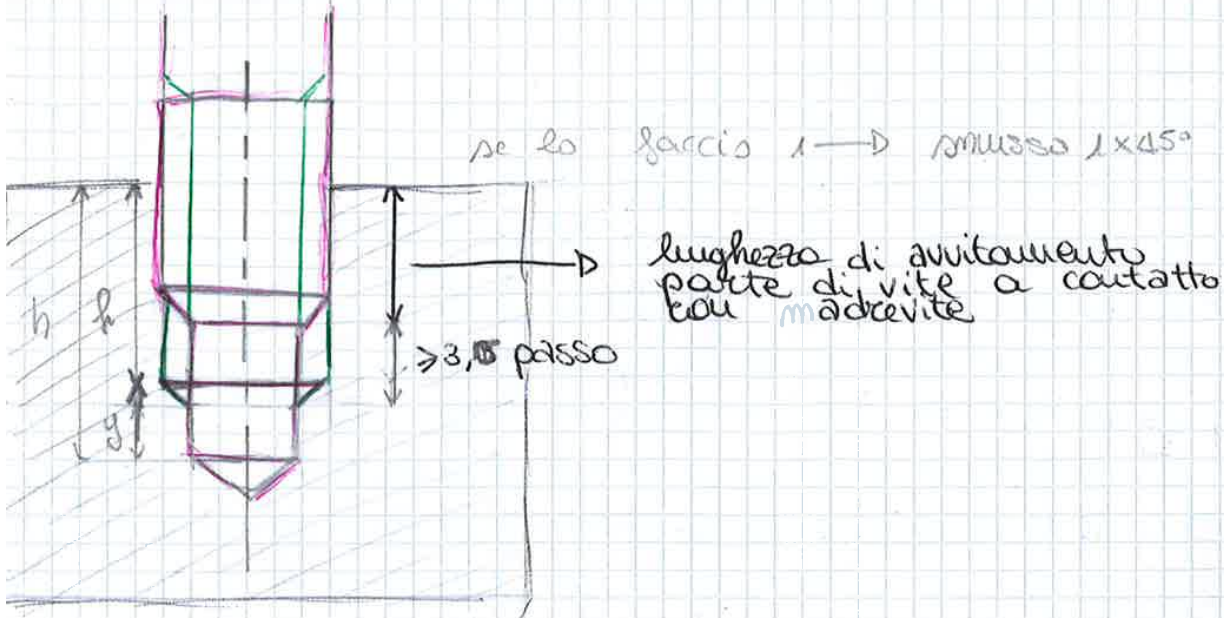 se lo faccio 1 → smusso 1x45°
lunghezza di avvitamento
parte di vite a contatto
con madrevite
h
h
≥3,5 passo
y